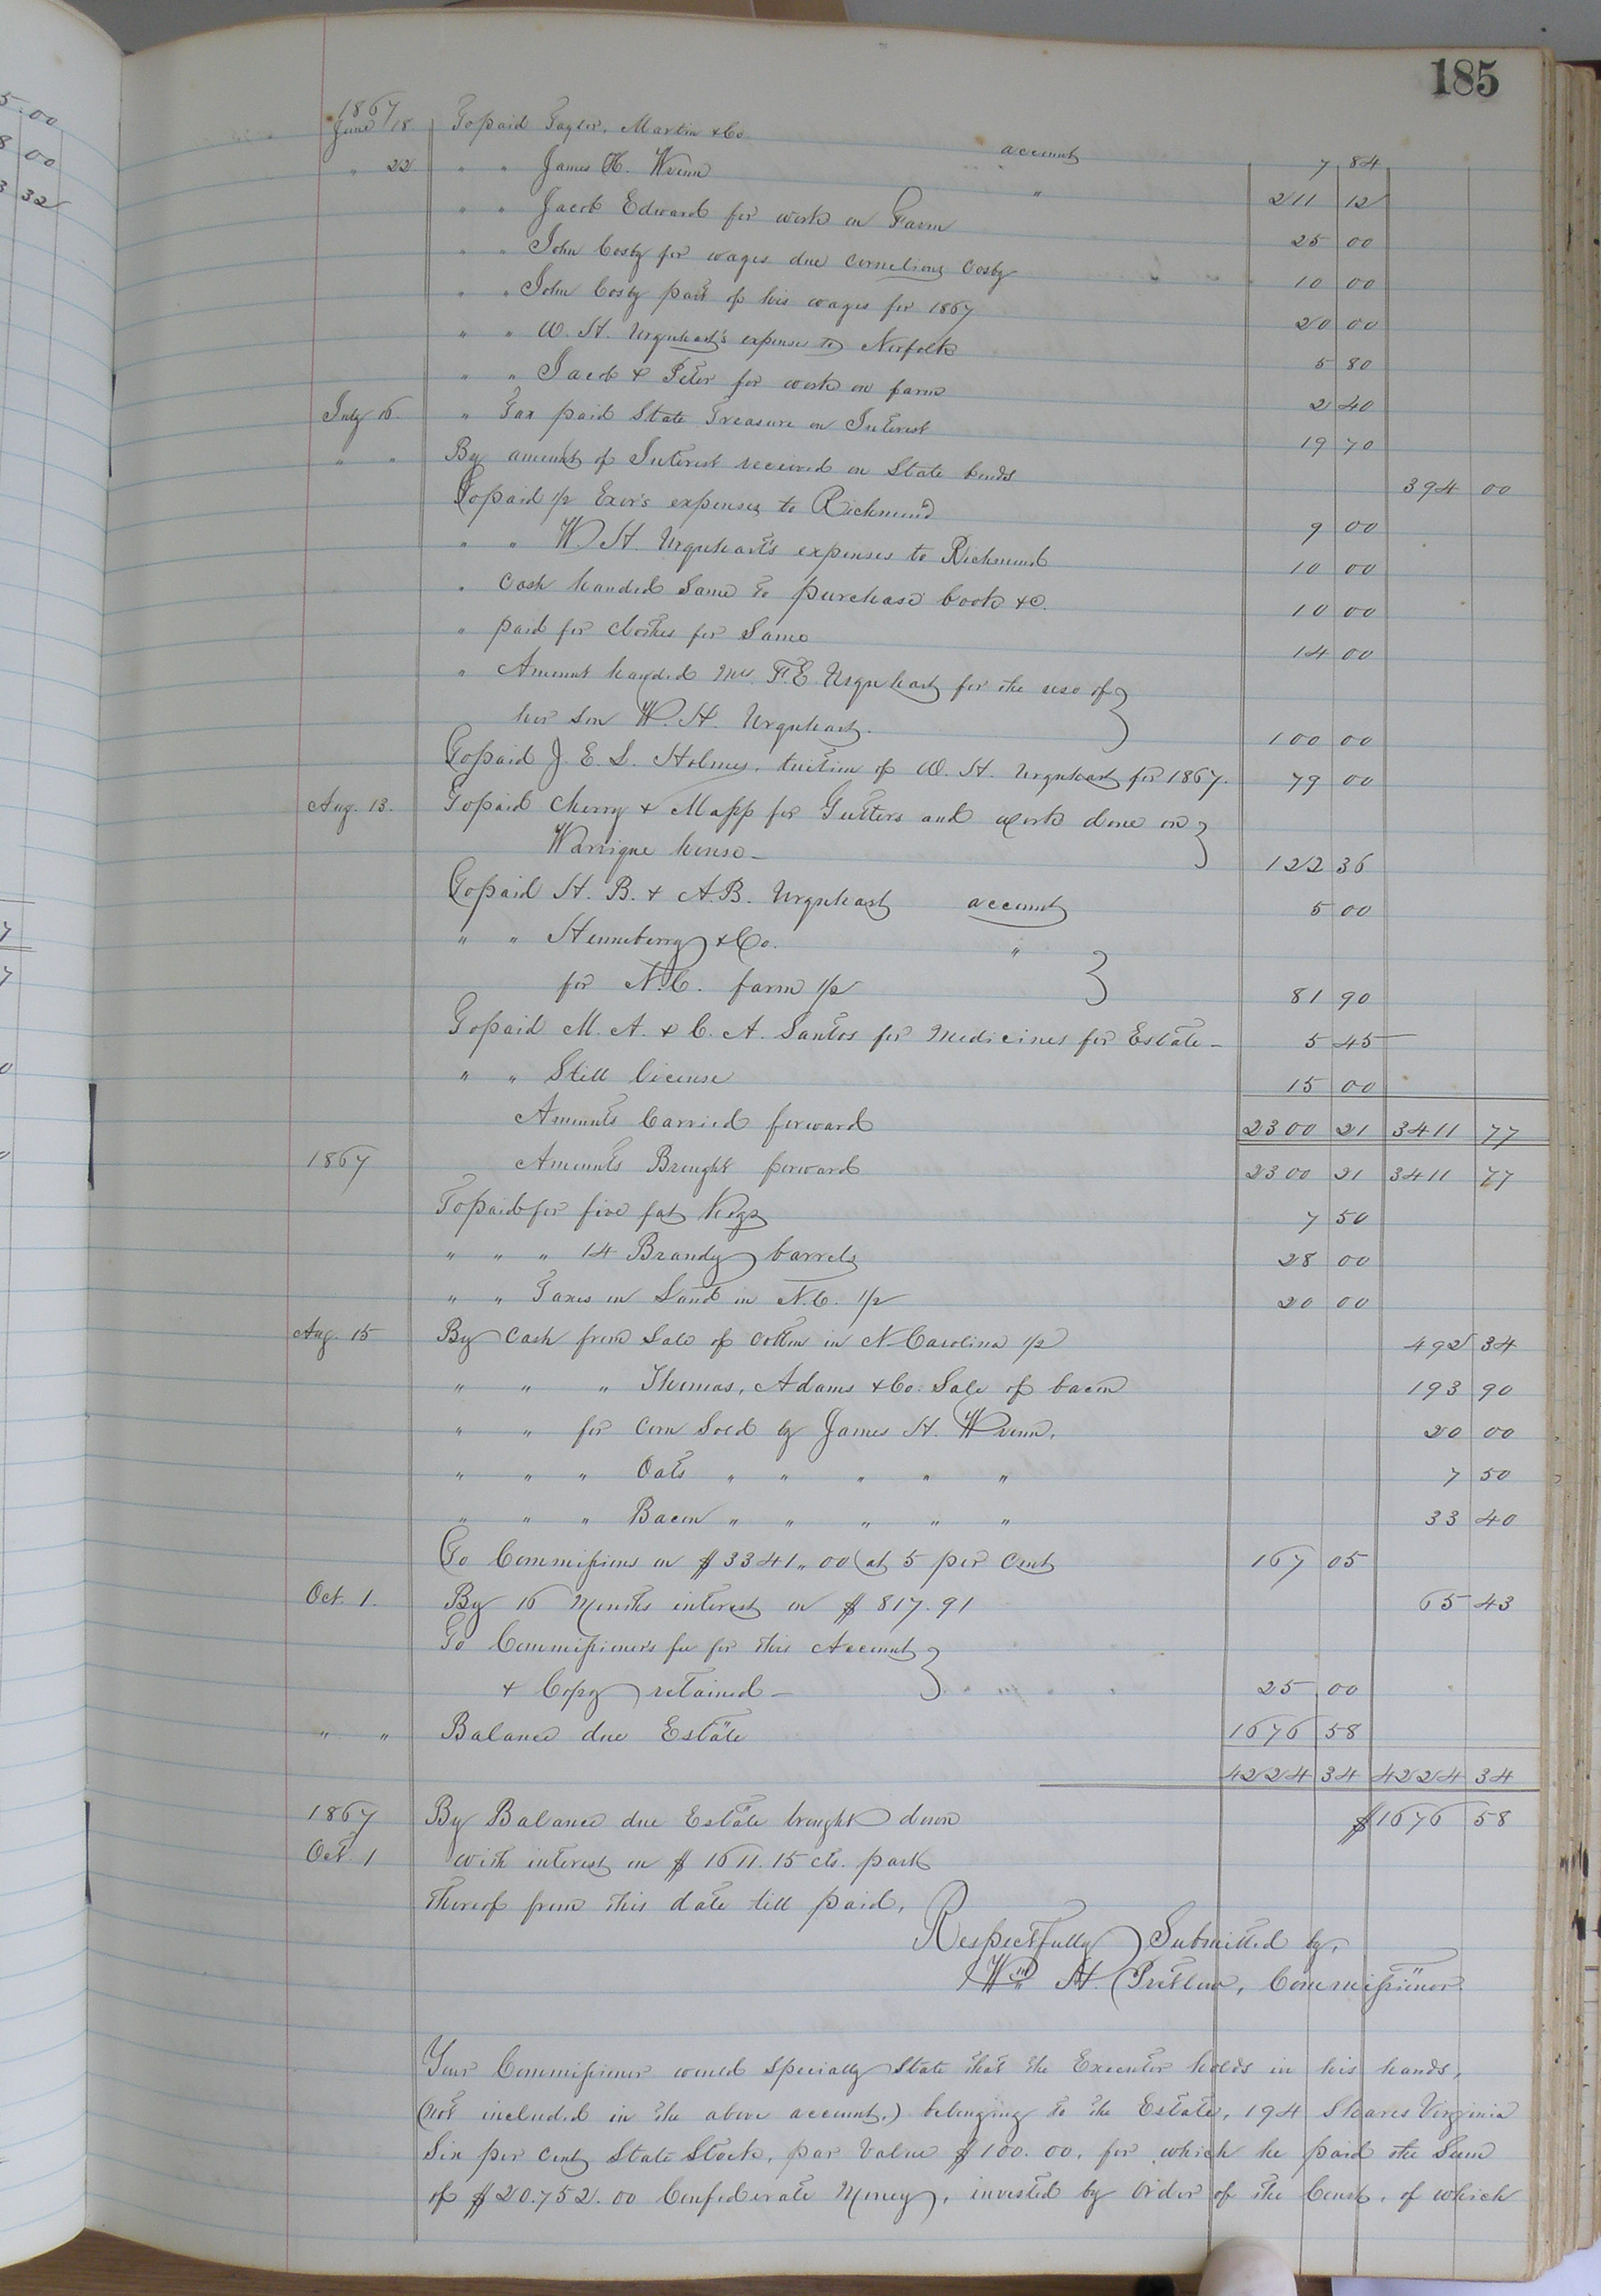 185
5.00
8 00
3 32
1867
June 18. To paid Taylor, Martin & Co. account 7 84
" 22 " " James H. Wrenn " 211 12
" " Jacob Edwards for work on Farm 25 00
" " John Cosby for wages due Cornelious Cosby 10 00
" " John Cosby part of his wages for 1867 20 00
" " W. H. Urquhart's expense to Norfolk 5 80
" " Jacob & Peter for work on farm 2 40
July 16. " Tax paid State Treasure on Interest 19 70
" " By amount of Interest received on State bonds 394 00
To paid 1/2 Exor's expenses to Richmond 9 00
" " W. H. Urquhart's expenses to Richmond 10 00
" Cash handed Same to purchase books &c. 10 00
" paid for clothes for Same 14 00
" Amount handed Mrs. F. E. Urquhart for the use of
her son W. H. Urquhart. 100 00
To paid J. E. L. Holmes, tuition of W. H. Urquhart for 1867. 79 00
Aug. 13. To paid Cherry & Mapp for Gutters and work done on
Warrique house - 122 36
To paid H. B. & A. B. Urquhart account 5 00
" " Henneberry & Co. "
for N. C. farm 1/2 81 90
To paid M. A. & C. A. Santos for Medicines for Estate - 5 45
" " Still license 15 00
Amounts Carried forward 2300 21 3411 77
1867 Amounts Brought forward 2300 21 3411 77
To paid for five fat Kegs 7 50
" " " 14 Brandy barrels 28 00
" " Taxes on Land in N. C. 1/2 20 00
Aug. 15 By Cash from Sale of Cotton in N. Carolina 1/2 492 34
" " " Thomas, Adams & Co. Sale of bacon 193 90
" " for Corn Sold by James H. Wrenn, 20 00
" " " Oats " " " " " 7 50
" " " Bacon " " " " " 33 40
To Commissions on $3341.00 at 5 per Cent 167 05
Oct. 1. By 16 Months interest on $817.91 65 43
To Commissioner's fee for this Account
& Copy retained - 25 00
" " Balance due Estate 1676 58
4224 34 4224 34
1867 By Balance due Estate brought down $1676 58
Oct. 1 with interest on $1611.15 cts. part
thereof from this date till paid,
Respectfully Submitted by,
Wm. H. Pretlow, Commissioner.
Your Commissioner would specially State that the Executor holds in his hands,
(not included in the above account,) belonging to the Estate, 194 Shares Virginia
Six per cent State Stock, par Value $100.00, for which he paid the Sum
of $20.752.00 Confederate Money, invested by order of the Court, of which